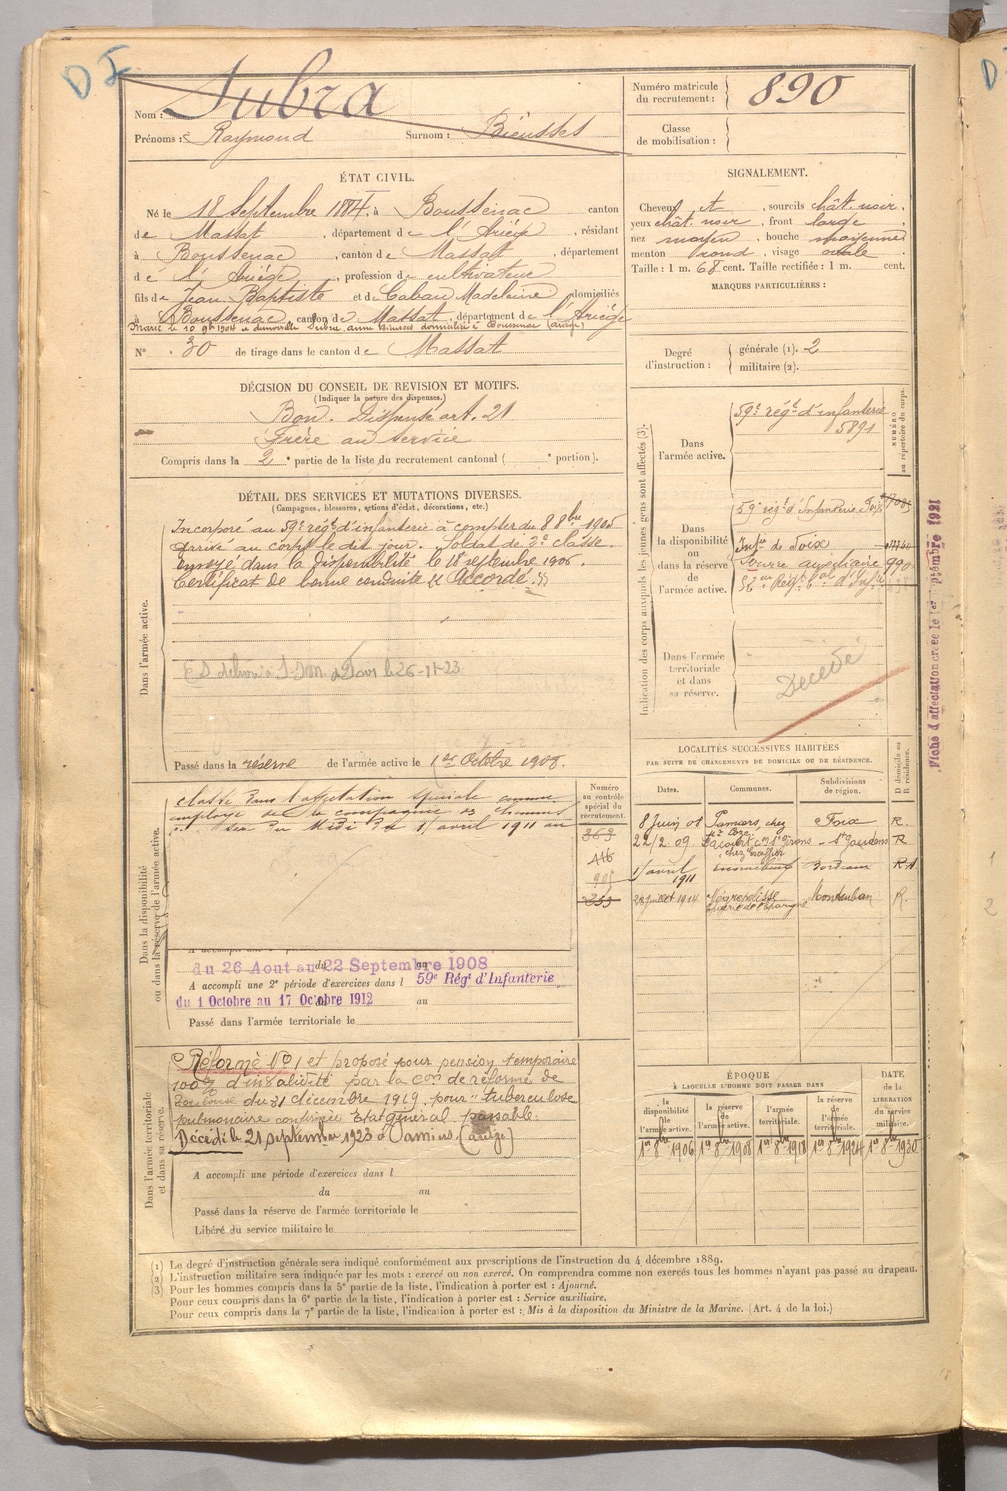 D I
Nom : Subra
Prénoms : Raymond Surnom : Bieusses
Numéro matricule du recrutement : 890
Classe de mobilisation :
ÉTAT CIVIL.
Né le 18 Septembre 1884, à Boussenac canton
de Massat, département de l'Ariège, résidant
à Boussenac, canton de Massat, département
de l'Ariège, profession de cultivateur
fils de Jean Baptiste et de Caban Madeleine domiciliés
à Boussenac, canton de Massat, département de l'Ariège
N° 30 de tirage dans le canton de Massat
SIGNALEMENT.
Cheveux et , sourcils chât. noir,
yeux chât. noir, front large
nez moyen, bouche moyenne
menton rond, visage ovale
Taille : 1 m. 68 cent. Taille rectifiée : 1 m. cent.
MARQUES PARTICULIÈRES :
Degré d'instruction : générale (1). 2
militaire (2).
DÉCISION DU CONSEIL DE REVISION ET MOTIFS.
(Indiquer la nature des dispenses.)
Bon. Dispensé art. 21
Frère au service
Compris dans la 2e partie de la liste du recrutement cantonal ( e portion).
DÉTAIL DES SERVICES ET MUTATIONS DIVERSES.
(Campagnes, blessures, actions d'éclat, décorations, etc.)
Dans l'armée active.
Incorporé au 59e régt d'infanterie à compter du 8 8bre 1905
Arrivé au corps le dit jour. Soldat de 2e classe.
Envoyé dans la disponibilité le 18 septembre 1906.
Certificat de bonne conduite "Accordé".
le 26-11-23
Passé dans la réserve de l'armée active le 1er Octobre 1908.
Indication des corps auxquels les jeunes gens sont affectés (3).
NUMÉRO au répertoire du corps.
Dans l'armée active.
59e régt d'infanterie
5891
Dans la disponibilité ou dans la réserve de l'armée active.
59e régt d'Infanterie Foix
Infie de Foix
990
Dans l'armée territoriale et dans sa réserve.
Décédé
Fiche d'affectation créée le 1er septembre 1921
LOCALITÉS SUCCESSIVES HABITÉES
PAR SUITE DE CHANGEMENTS DE DOMICILE OU DE RÉSIDENCE.
Dates. Communes. Subdivisions de région. D domicile ou R résidence.
8 Juin 08 Pamiers, chez Foix R.
22/2 09 Lacourt, cn St Girons St Gaudens R
1 avril 1911 Bordeaux
28 juillet 1914 Nègrepelisse Montauban R.
Numéro au contrôle spécial du recrutement.
363
416
Dans la disponibilité ou dans la réserve de l'armée active.
Classé dans l'affectation spéciale comme
employé de la compagnie des chemins
de fer du Midi du 1 avril 1911 au
du 26 Aout au 22 Septembre 1908
A accompli une 2e période d'exercices dans l 59e Régt d'Infanterie
du 1 Octobre au 17 Octobre 1912 au
Passé dans l'armée territoriale le
Dans l'armée territoriale et dans sa réserve.
Réformé N° 1 et proposé pour pension temporaire
100% d'invalidité par la con de réforme de
Toulouse du 31 décembre 1919 pour "tuberculose
pulmonaire confirmée Etat général passable.
Décédé le 21 septembre 1923 à Pamiers (ariège)
A accompli une période d'exercices dans l
du au
Passé dans la réserve de l'armée territoriale le
Libéré du service militaire le
ÉPOQUE
A LAQUELLE L'HOMME DOIT PASSER DANS
la disponibilité de l'armée active. la réserve de l'armée active. l'armée territoriale. la réserve de l'armée territoriale. DATE de la LIBÉRATION du service militaire.
1er 8bre 1906 1er 8bre 1908 1er 8bre 1918 1er 8bre 1924 1er 8bre 1930
(1) Le degré d'instruction générale sera indiqué conformément aux prescriptions de l'instruction du 4 décembre 1889.
(2) L'instruction militaire sera indiquée par les mots : exercé ou non exercé. On comprendra comme non exercés tous les hommes n'ayant pas passé au drapeau.
(3) Pour les hommes compris dans la 5e partie de la liste, l'indication à porter est : Ajourné.
Pour ceux compris dans la 6e partie de la liste, l'indication à porter est : Service auxiliaire.
Pour ceux compris dans la 7e partie de la liste, l'indication à porter est : Mis à la disposition du Ministre de la Marine. (Art. 4 de la loi.)